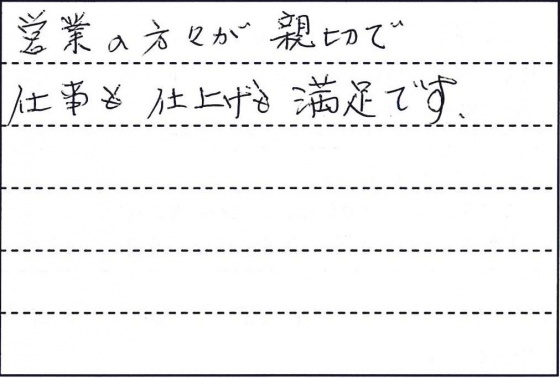 営業の方々が 親切で
仕事も 仕上げも 満足です、